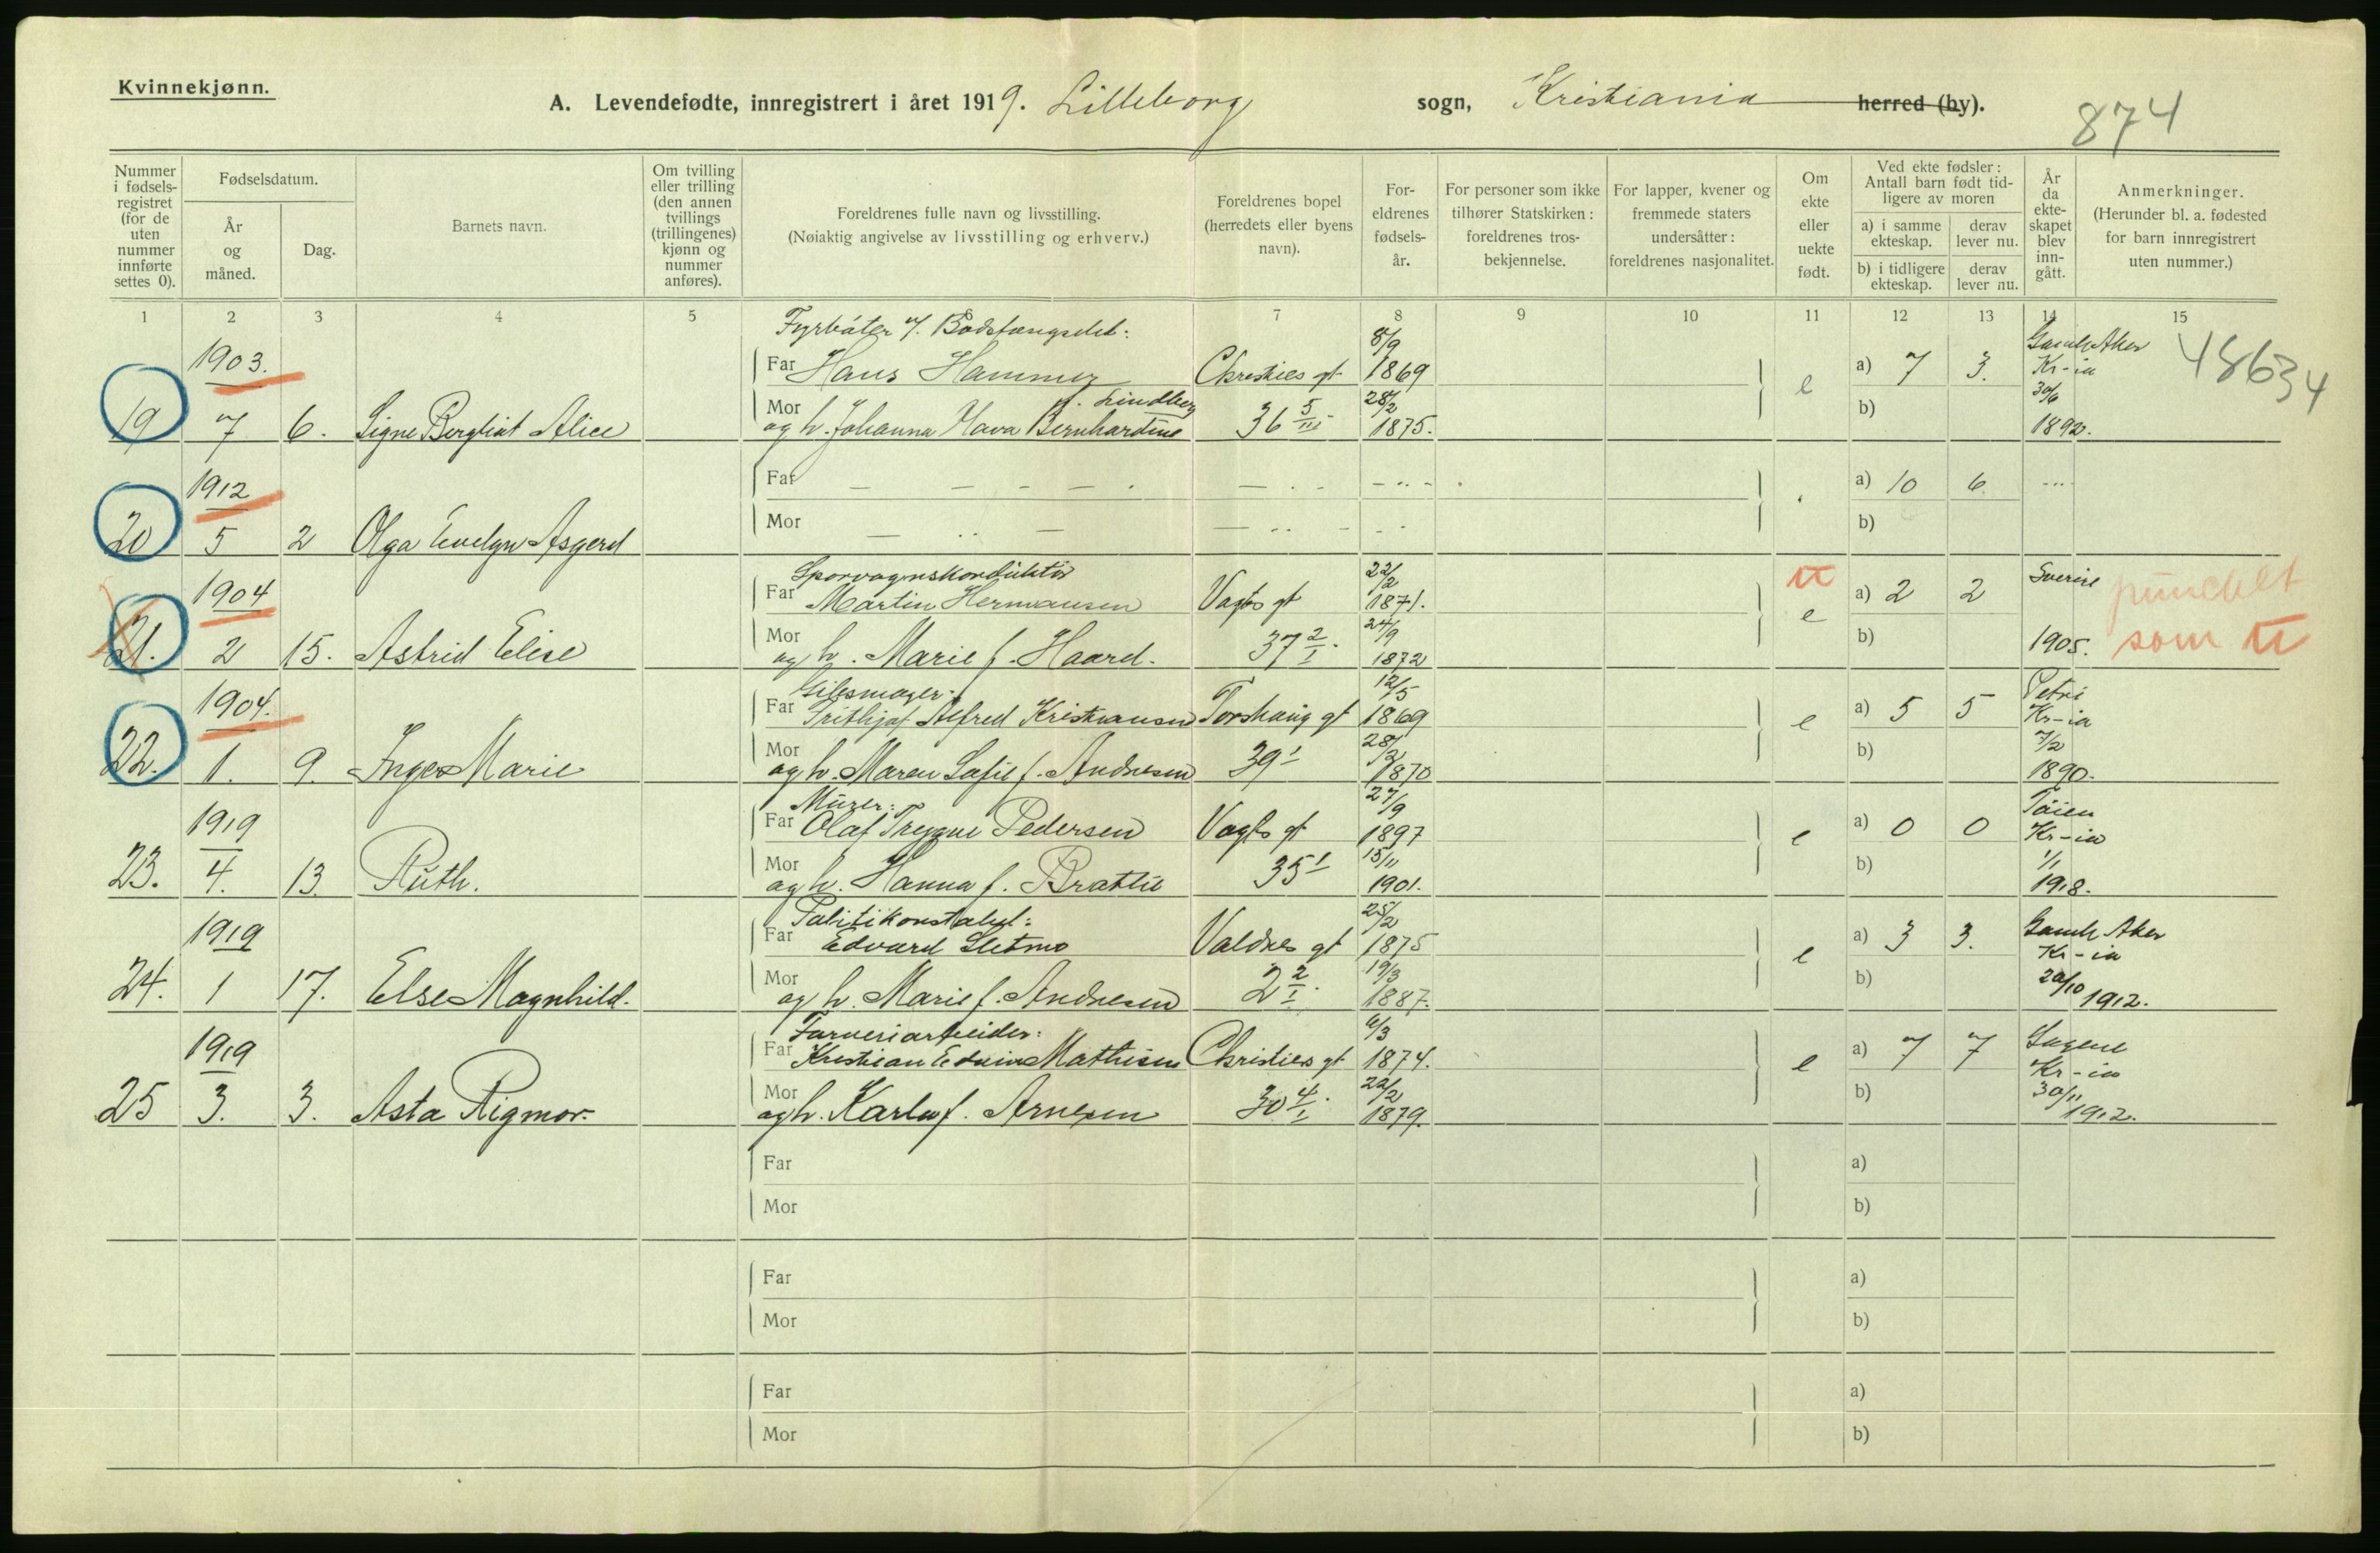 Kvinnekjønn.
A. Levendefødte, innregistrert i året 1919. Lilleborg sogn, Kristiania herred (by).
874
Nummer i fødsels-registret (for de uten nummer innførte settes 0).
Fødselsdatum.
År og måned.
Dag.
Barnets navn.
Om tvilling eller trilling (den annen tvillings (trillingenes) kjønn og nummer anføres).
Foreldrenes fulle navn og livsstilling.
(Nøiaktig angivelse av livsstilling og erhverv.)
Foreldrenes bopel (herredets eller byens navn).
For-eldrenes fødsels-år.
For personer som ikke tilhører Statskirken: foreldrenes tros-bekjennelse.
For lapper, kvener og fremmede staters undersåtter: foreldrenes nasjonalitet.
Om ekte eller uekte født.
Ved ekte fødsler: Antall barn født tid-ligere av moren
a) i samme ekteskap.
derav lever nu.
b) i tidligere ekteskap.
derav lever nu.
År da ekte-skapet blev inn-gått.
Anmerkninger.
(Herunder bl. a. fødested for barn innregistrert uten nummer.)
1 2 3 4 5 7 8 9 10 11 12 13 14 15
Fyrbøter v. Bodsfængslet: 8/9 Gamle Aker
1903. Far Hans Hammer Christies gt 1869 e a) 7 3. Kr-ia 48634
f. Lindberg 28/2 30/6
19 7 6. Signe Bergliot Alice Mor og h. Johanna Hava Bernhardine 36 5/III 1875. b) 1892.
1912 Far — — — — — . - - .. - . a) 10 6. ...
20 5 2 Olga Evelyn Asgerd Mor — .. — — .. - - . b)
Sporvognskonduktør 22/2 u Sverige
1904 Far Martin Hermansen Vagts gt 1871. e a) 2 2 punchet
24/9
21. 2 15. Astrid Elise Mor og h. Marie f. Haard. 37 2/I. 1872 b) 1905. som u
Gibsmager: 12/5 Petri
1904. Far Frithjof Alfred Kristiansen Torshaug gt 1869 e a) 5 5 Kr-ia
28/3 7/2
22. 1. 9. Inger Marie Mor og h. Maren Sofie f. Andresen 39 I 1870 b) 1890.
Murer: 27/9 Tøien
1919 Far Olaf Trygve Pedersen Vagts gt 1897 e a) 0 0 Kr-ia
15/11 1/1
23. 4. 13. Ruth. Mor og h. Hanna f. Brattlie 35 I 1901. b) 1918.
Politikonstabel: 25/2
1919 Far Edvard Sletmo Valdres gt 1875 e a) 3 3. Gamle Aker
19/3 Kr-ia
24. 1 17. Else Magnhild. Mor og h. Marie f. Andresen 2 2/I. 1887. b) 20/10 1912.
Farveriarbeider: 6/3
1919 Far Kristian Edvin Mathisen Christies gt 1874. e a) 7 7 Sagene
22/2 Kr-ia
25 3. 3. Asta Rigmor. Mor og h. Karla f. Arnesen 30 4/I. 1879. b) 30/11 1912.
Far a)
Mor b)
Far a)
Mor b)
Far a)
Mor b)